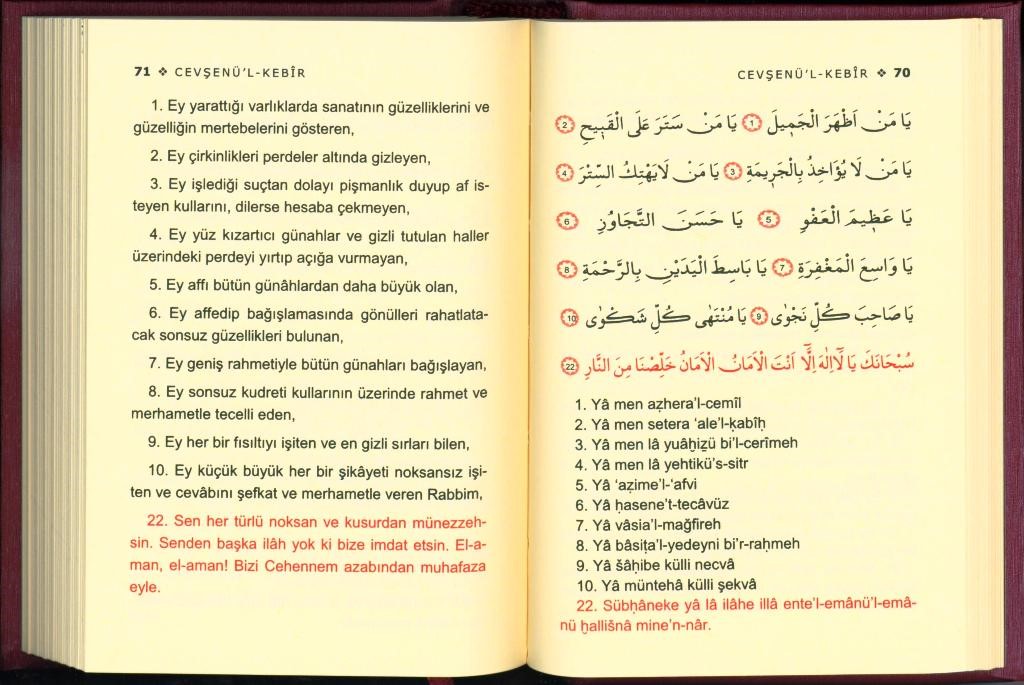 71 ❖ CEVŞENÜ'L-KEBÎR
1. Ey yarattığı varlıklarda sanatının güzelliklerini ve
güzelliğin mertebelerini gösteren,
2. Ey çirkinlikleri perdeler altında gizleyen,
3. Ey işlediği suçtan dolayı pişmanlık duyup af is-
teyen kullarını, dilerse hesaba çekmeyen,
4. Ey yüz kızartıcı günahlar ve gizli tutulan haller
üzerindeki perdeyi yırtıp açığa vurmayan,
5. Ey affı bütün günâhlardan daha büyük olan,
6. Ey affedip bağışlamasında gönülleri rahatlata-
cak sonsuz güzellikleri bulunan,
7. Ey geniş rahmetiyle bütün günahları bağışlayan,
8. Ey sonsuz kudreti kullarının üzerinde rahmet ve
merhametle tecelli eden,
9. Ey her bir fısıltıyı işiten ve en gizli sırları bilen,
10. Ey küçük büyük her bir şikâyeti noksansız işi-
ten ve cevâbını şefkat ve merhametle veren Rabbim,
22. Sen her türlü noksan ve kusurdan münezzeh-
sin. Senden başka ilâh yok ki bize imdat etsin. El-a-
man, el-aman! Bizi Cehennem azabından muhafaza
eyle.
CEVŞENÜ'L-KEBÎR ❖ 70
يَا مَنْ اَظْهَرَ الْجَمِيلَ ١ يَا مَنْ سَتَرَ عَلَى الْقَبِيحِ ٢
يَا مَنْ لَا يُؤَاخِذُ بِالْجَرِيمَةِ ٣ يَا مَنْ لَايَهْتِكُ السِّتْرَ ٤
يَا عَظِيمَ الْعَفْوِ ٥ يَا حَسَنَ التَّجَاوُزِ ٦
يَا وَاسِعَ الْمَغْفِرَةِ ٧ يَا بَاسِطَ الْيَدَيْنِ بِالرَّحْمَةِ ٨
يَا صَاحِبَ كُلِّ نَجْوٰى ٩ يَا مُنْتَهٰى كُلِّ شَكْوٰى ١٠
سُبْحَانَكَ يَا لَٓااِلٰهَ اِلَّٓا اَنْتَ الْاَمَانُ الْاَمَانُ خَلِّصْنَا مِنَ النَّارِ ٢٢
1. Yâ men aẓhera'l-cemîl
2. Yâ men setera 'ale'l-ḳabîḥ
3. Yâ men lâ yuâḫiẕü bi'l-cerîmeh
4. Yâ men lâ yehtikü's-sitr
5. Yâ 'aẓime'l-'afvi
6. Yâ ḥasene't-tecâvüz
7. Yâ vâsia'l-mağfireh
8. Yâ bâsiṭa'l-yedeyni bi'r-raḥmeh
9. Yâ šâḥibe külli necvâ
10. Yâ müntehâ külli şekvâ
22. Sübḥâneke yâ lâ ilâhe illâ ente'l-emânü'l-emâ-
nü ḫallišnâ mine'n-nâr.